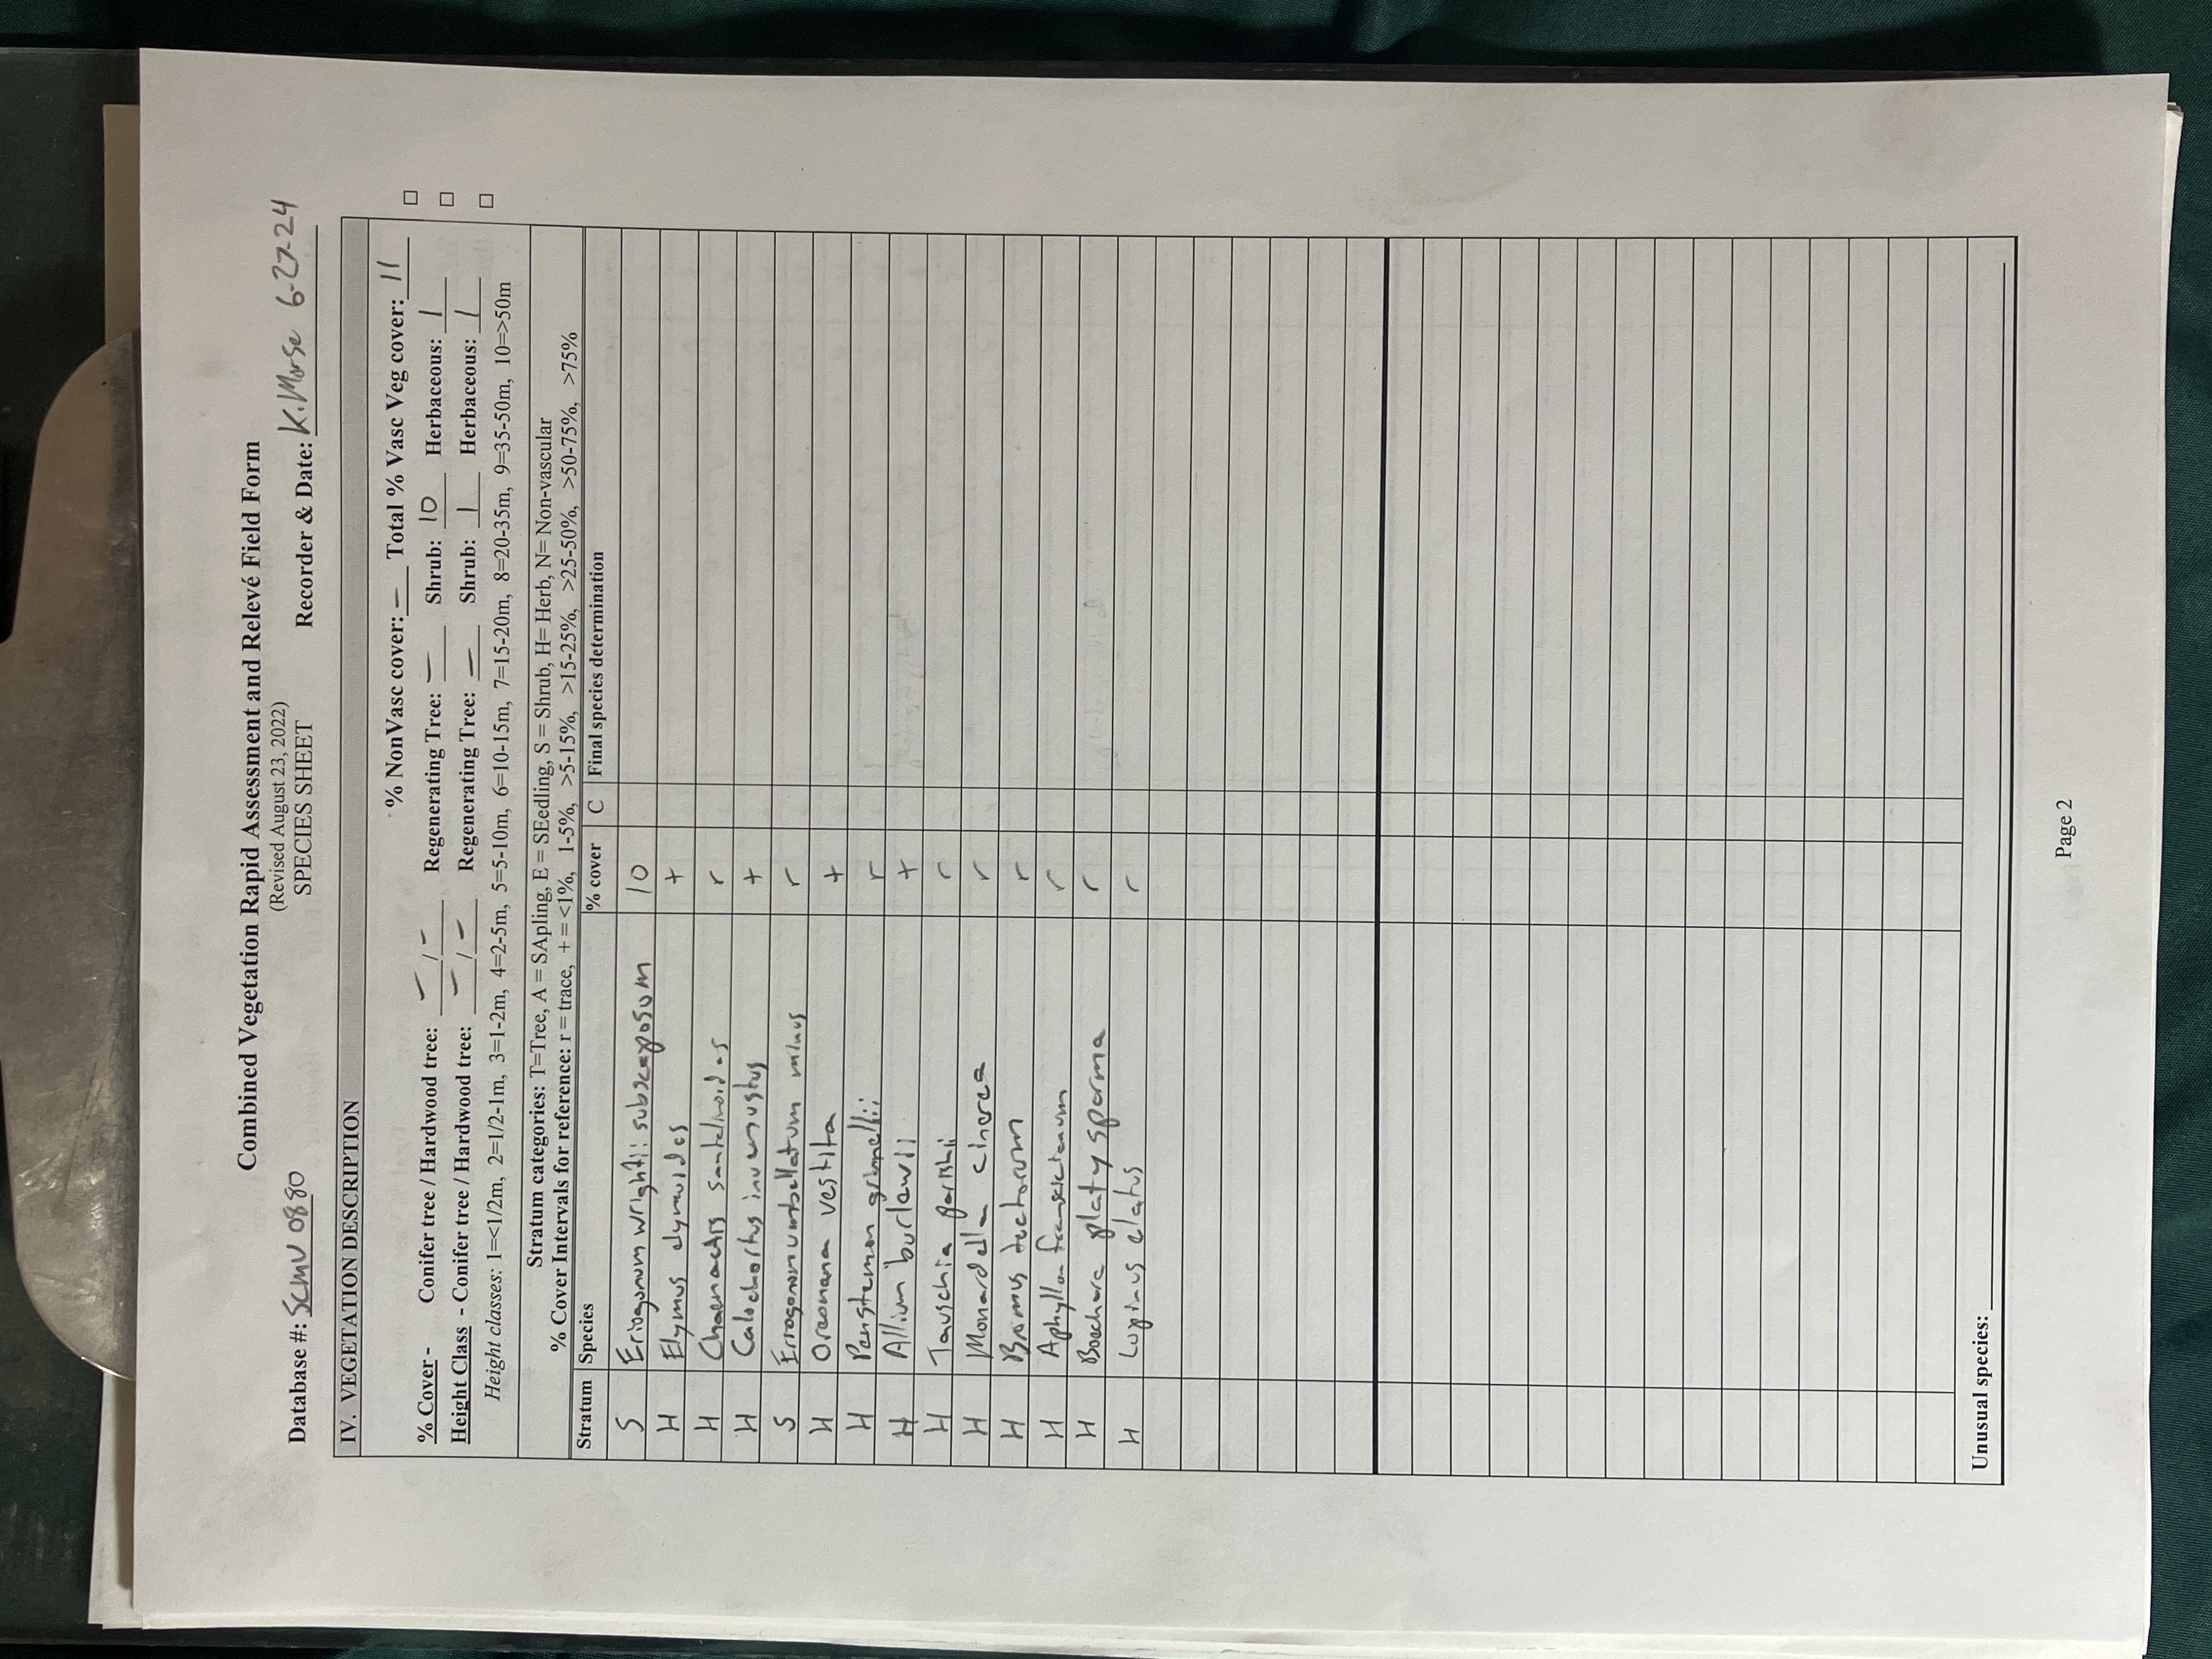 Combined Vegetation Rapid Assessment and Relevé Field Form
(Revised August 23, 2022)
Database #: SCMV 0880 SPECIES SHEET Recorder & Date: K. Morse 6-27-24
IV. VEGETATION DESCRIPTION
% NonVasc cover: — Total % Vasc Veg cover: 11
% Cover - Conifer tree / Hardwood tree: — / — Regenerating Tree: — Shrub: 10 Herbaceous: 1 □
Height Class - Conifer tree / Hardwood tree: — / — Regenerating Tree: — Shrub: 1 Herbaceous: 1 □
Height classes: 1=<1/2m, 2=1/2-1m, 3=1-2m, 4=2-5m, 5=5-10m, 6=10-15m, 7=15-20m, 8=20-35m, 9=35-50m, 10=>50m □
Stratum categories: T=Tree, A = SApling, E = SEedling, S = Shrub, H= Herb, N= Non-vascular
% Cover Intervals for reference: r = trace, + = <1%, 1-5%, >5-15%, >15-25%, >25-50%, >50-75%, >75%
Stratum Species % cover C Final species determination
S Eriogonum wrightii subscaposum 10
H Elymus elymoides +
H Chaenactis santolinoides r
H Calochortus invenustus +
S Eriogonum umbellatum minus r
H Oreonana vestita +
H Penstemon grinnellii r
H Allium burlewii +
H Tauschia parishii r
H Monardella cinerea r
H Bromus tectorum r
H Aphyllon r
H Boechera platysperma r
H Lupinus elatus r
Unusual species:
Page 2